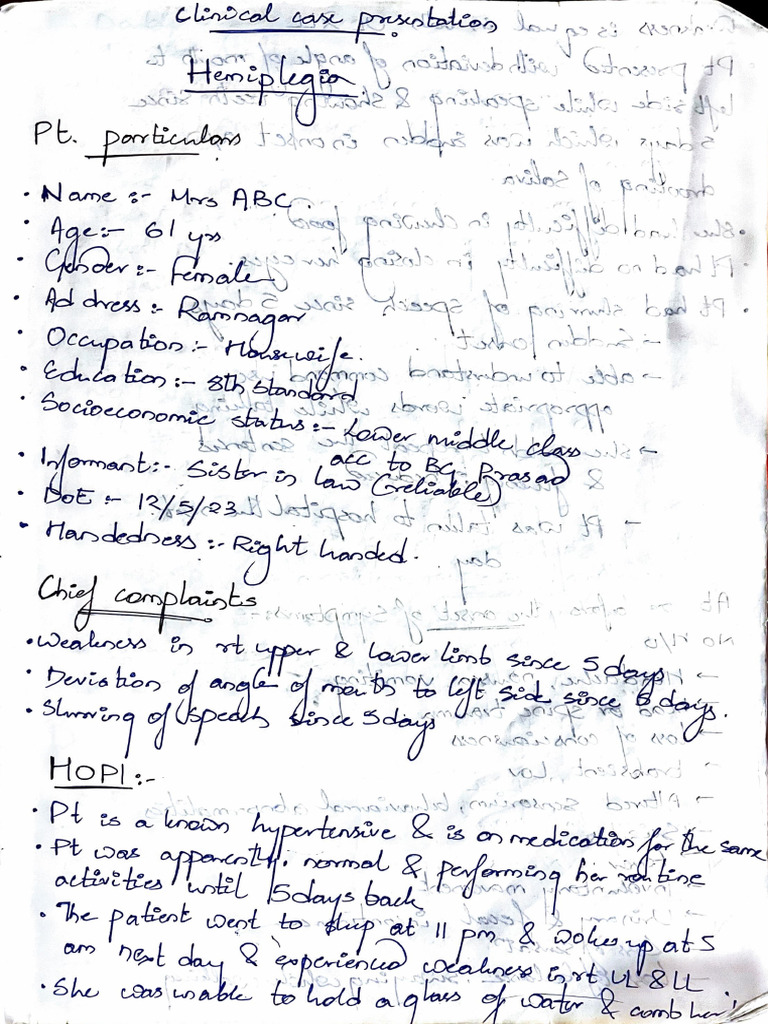 Clinical case presentation
Hemiplegia
Pt. particulars
• Name :- Mrs ABC.
• Age :- 61 yrs
• Gender :- Female
• Address :- Ramnagar
• Occupation :- Housewife.
• Education :- 8th standard
• Socioeconomic status :- Lower middle class
acc to BG Prasad
• Informant :- Sister in law (reliable)
• DOE :- 12/5/23
• Handedness :- Right handed.
Chief complaints
• Weakness in rt upper & lower limb since 5 days
• Deviation of angle of mouth to left side since 5 days.
• Slurring of speech since 5 days
HOPI :-
• Pt is a known hypertensive & is on medication for the same
• Pt was apparently normal & performing her routine
activities until 5 days back
• The patient went to sleep at 11 pm & woke up at 5
am next day & experienced weakness in rt UL & LL
• She was unable to hold a glass of water & comb her